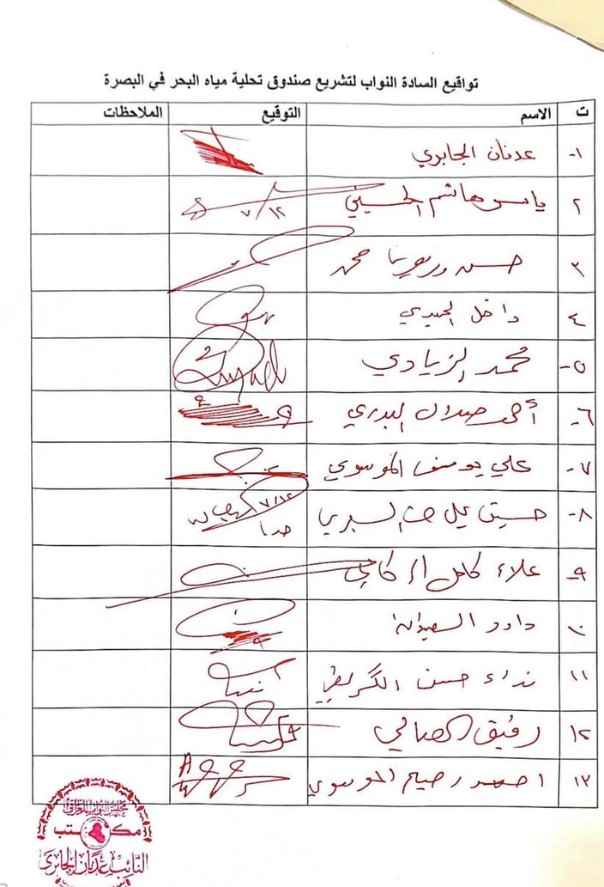 تواقيع السادة النواب لتشريع صندوق تحلية مياه البحر في البصرة
ت الاسم التوقيع الملاحظات
١- عدنان الجابري
٢ ياسر هاشم الحسيني ٧/١٢
٣ حسن
٤ داخل
٥- محمد الزيادي
٦- أحمد صدال البدري
٧- علي يوسف الموسوي
٨- حسين علي ٧/١٢
٩- علاء كامل الركابي
١٠ داود
١١ نداء حسن الكريطي
١٢ رفيق الصالحي
١٣ احمد رحيم الموسوي
مجلس النواب العراقي
مكتب
النائب عدنان الجابري